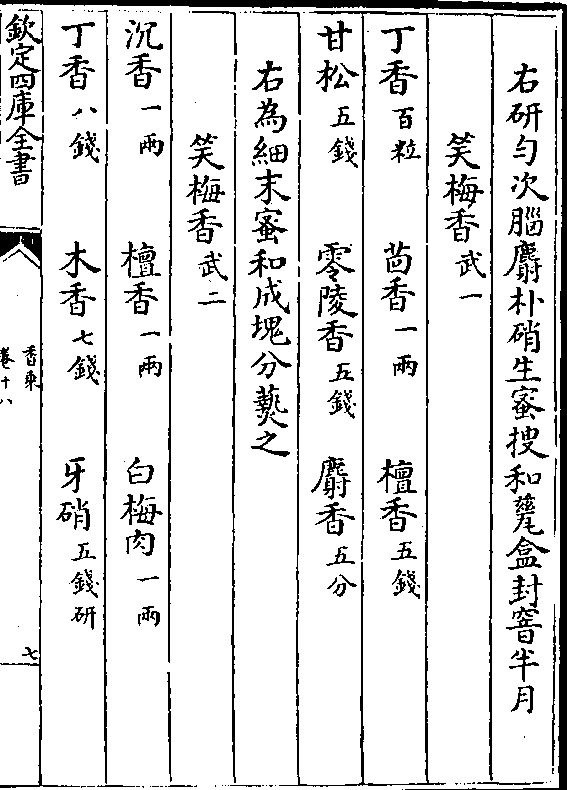 右研勻次腦麝朴硝生蜜搜和甆盒封窨半月
笑梅香武一
丁香百粒 茴香一兩 檀香五錢
甘松五錢 零陵香五錢 麝香五分
右為細末蜜和成塊分爇之
笑梅香武二
沉香一兩 檀香一兩 白梅肉一兩
丁香八錢 木香七錢 牙硝五錢研
欽定四庫全書
香乘
卷十八
七